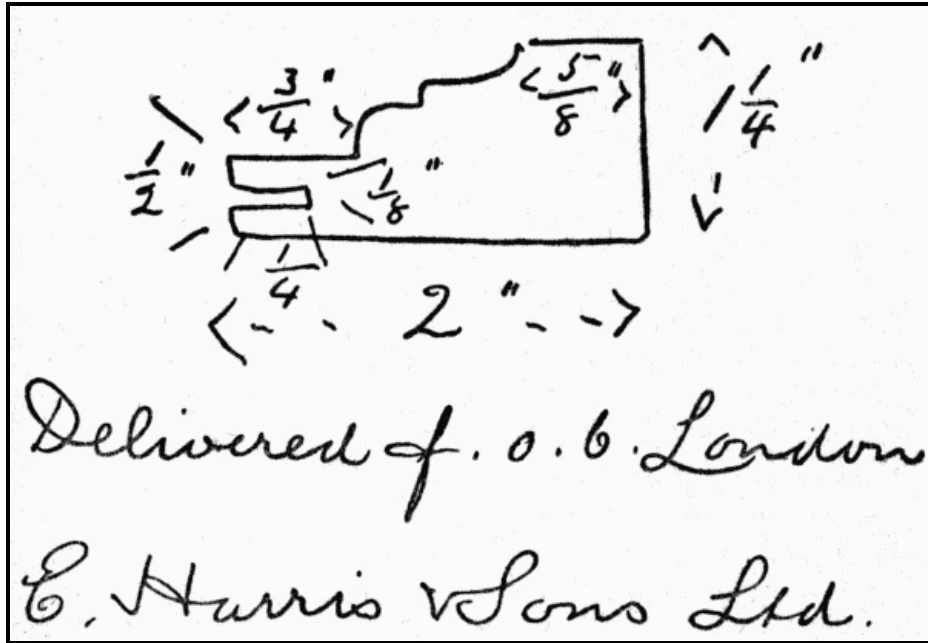 3/4"
5/8"
1 1/4"
1/2"
1/8"
1/4
2"
Delivered f.o.b. London
E. Harris & Sons Ltd.